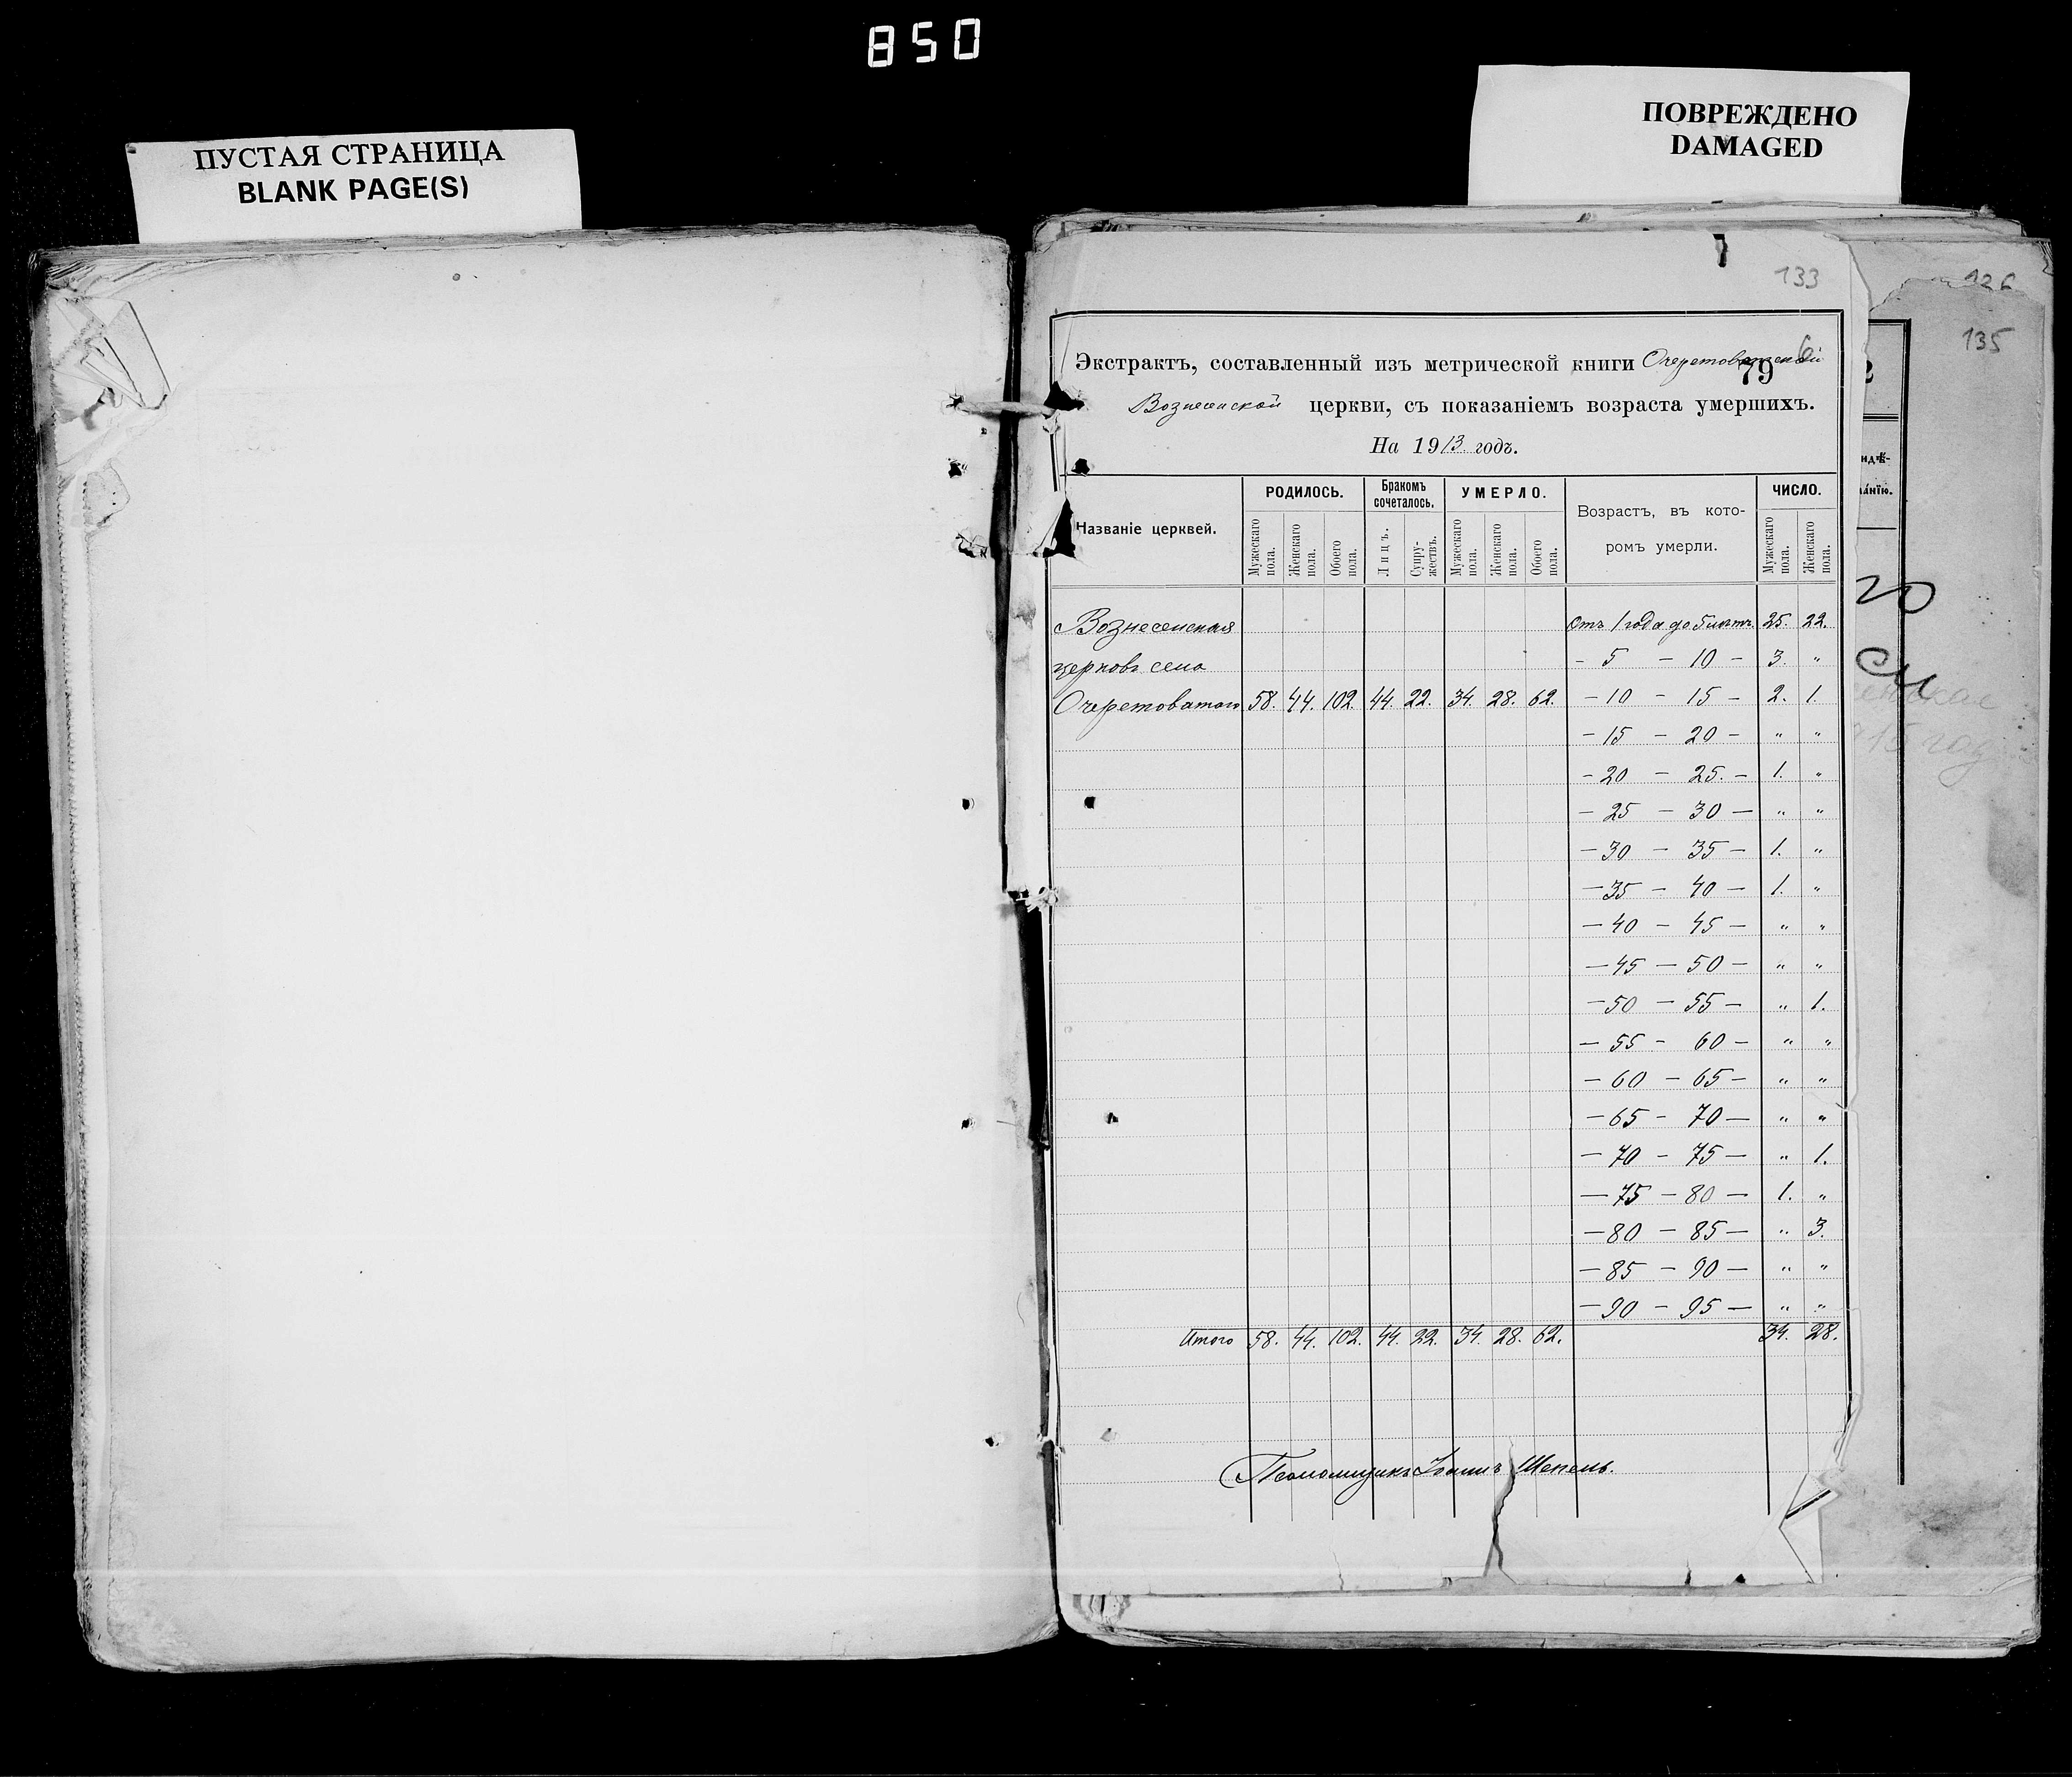 850
ПУСТАЯ СТРАНИЦА
BLANK PAGE(S)
ПОВРЕЖДЕНО
DAMAGED
133
126
135
Экстрактъ, составленный изъ метрической книги
796
Вознесенской церкви, съ показаніемъ возраста умершихъ.
На 1913 годъ.
Названіе церквей. РОДИЛОСЬ. Бракомъ сочеталось. УМЕРЛО. Возрастъ, въ кото-ромъ умерли. ЧИСЛО.
Мужескаго пола. Женскаго пола. Обоего пола. Лицъ. Супру-жествъ. Мужескаго пола. Женскаго пола. Обоего пола. Мужескаго пола. Женскаго пола.
Вознесенская Отъ 1 года до 5 лѣтъ 25. 22.
церковь села - 5 - 10 - 3. "
Очеретоватаго 58. 44. 102. 44. 22. 34. 28. 62. - 10 - 15 - 2. 1.
- 15 - 20 - " "
- 20 - 25. - 1. "
- 25 - 30 - " "
- 30 - 35 - 1. "
- 35 - 40 - 1. "
- 40 - 45 - " "
- 45 - 50 - " "
- 50 - 55 - " 1.
- 55 - 60 - " "
- 60 - 65 - " "
- 65 - 70 - " "
- 70 - 75 - " 1.
- 75 - 80 - 1. "
- 80 - 85 - " 3.
- 85 - 90 - " "
- 90 - 95 - " "
Итого 58. 44. 102. 44. 22. 34. 28. 62. 34. 28.
Псаломщикъ Іоаннъ Шепель.